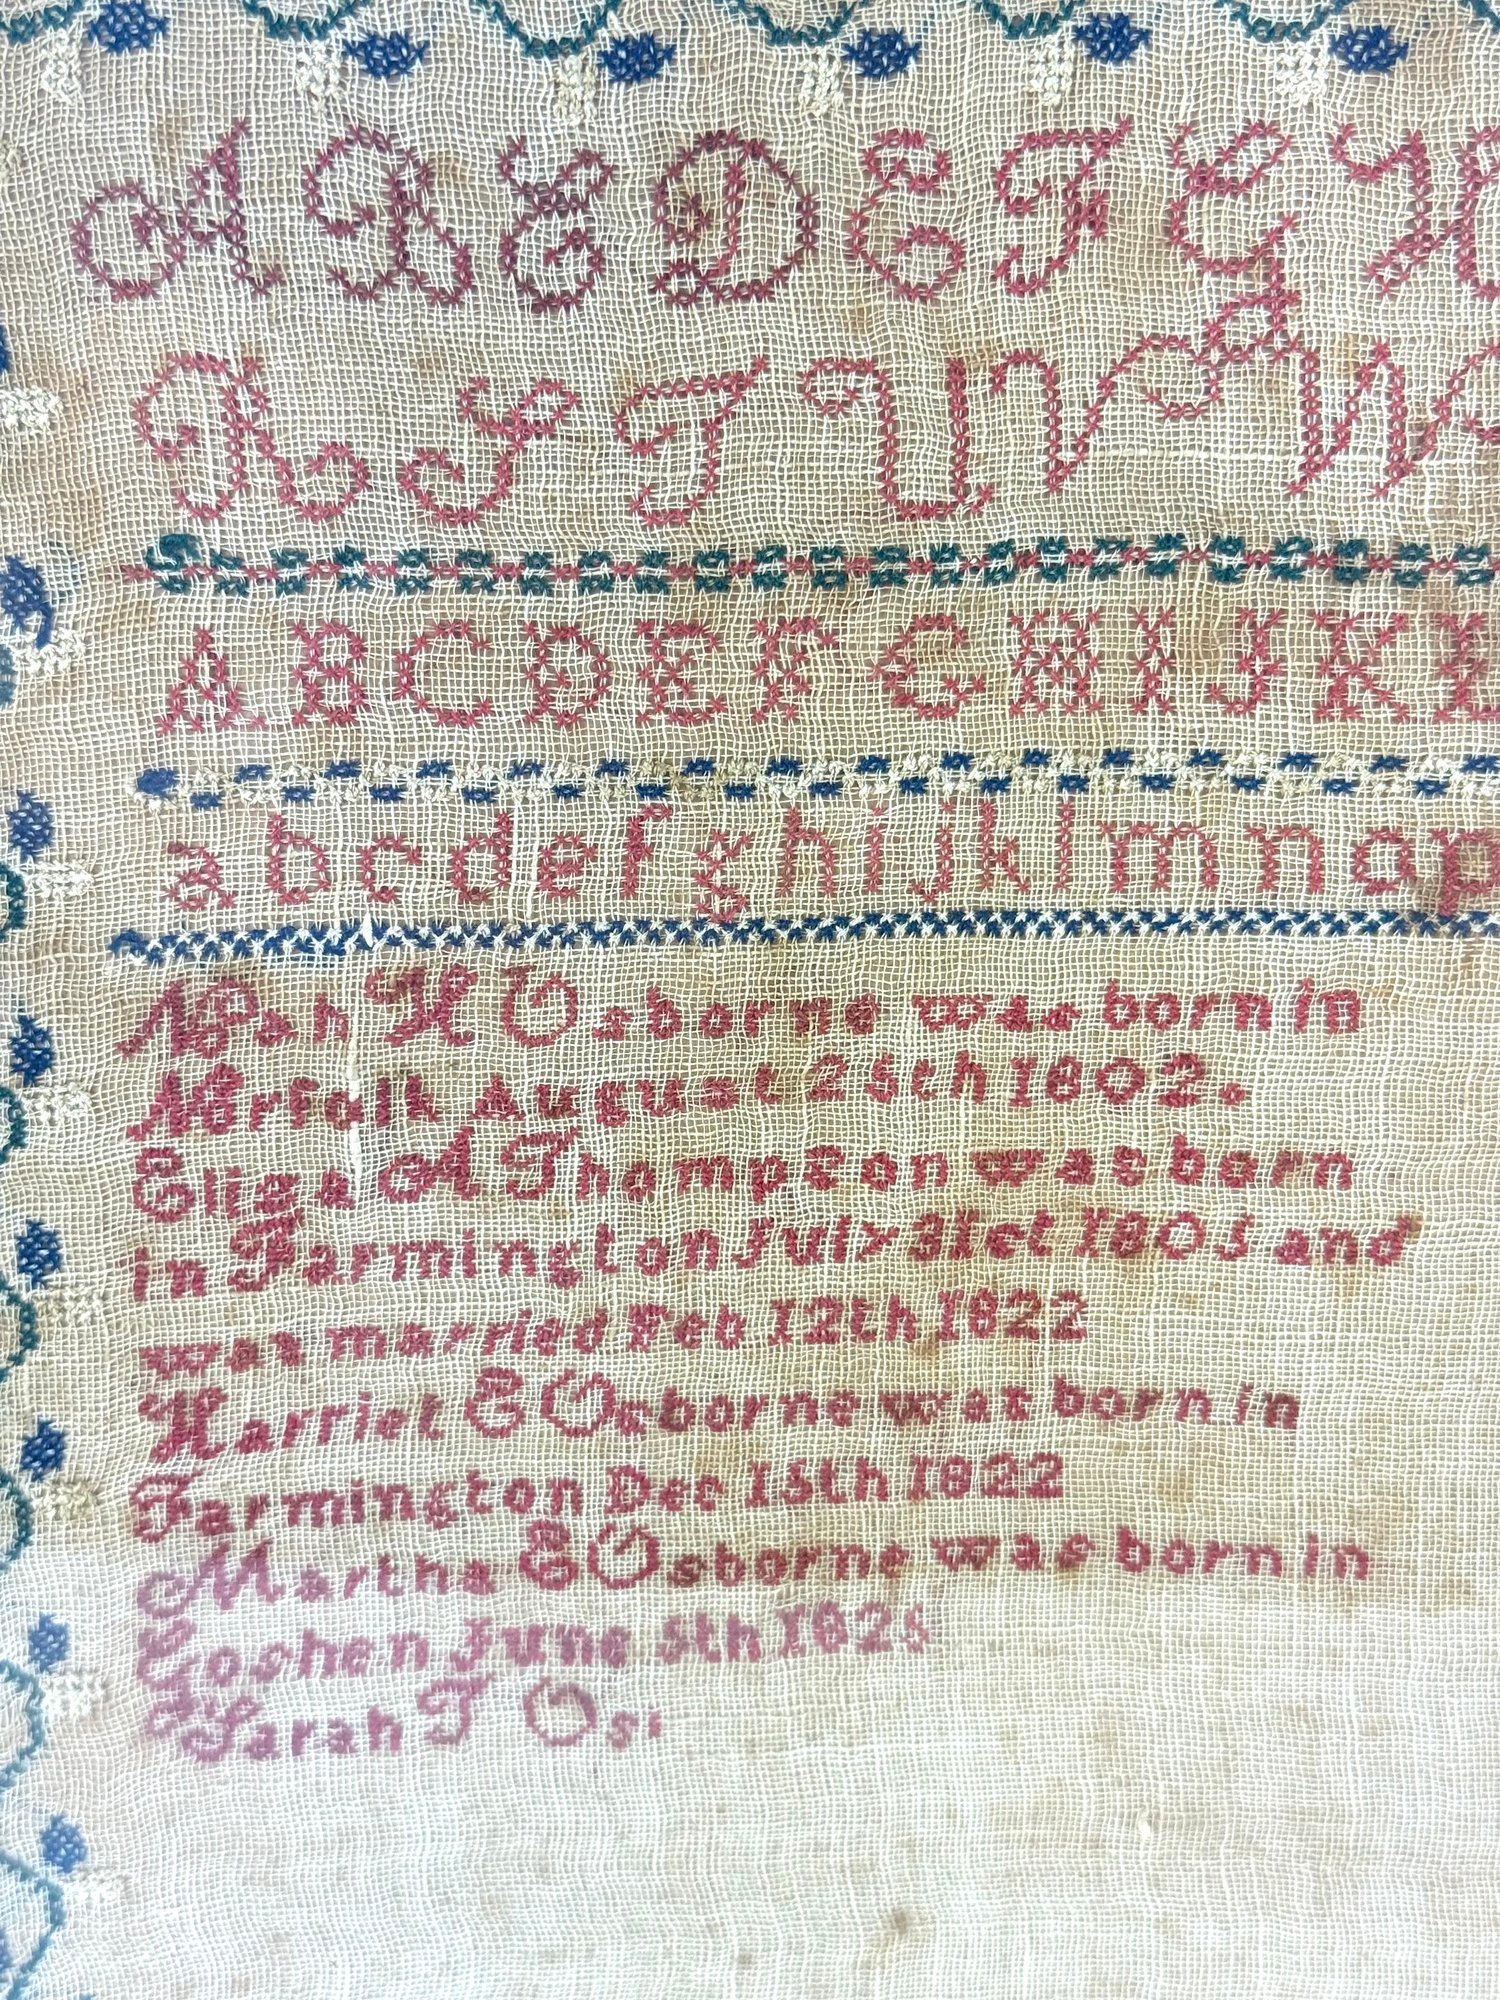 A B C D E F G H
R S T U V W
A B C D E F G H I J K L
a b c d e f g h i j k l m n o p
H Osborne was born in
Norfolk August 25th 1802.
Eliza A Thompson was born
in Farmington July 31st 1805 and
was married Feb 12th 1822
Harriet E Osborne was born in
Farmington Dec 15th 1822
Martha E Osborne was born in
Goshen June 5th 1825
Sarah T Os